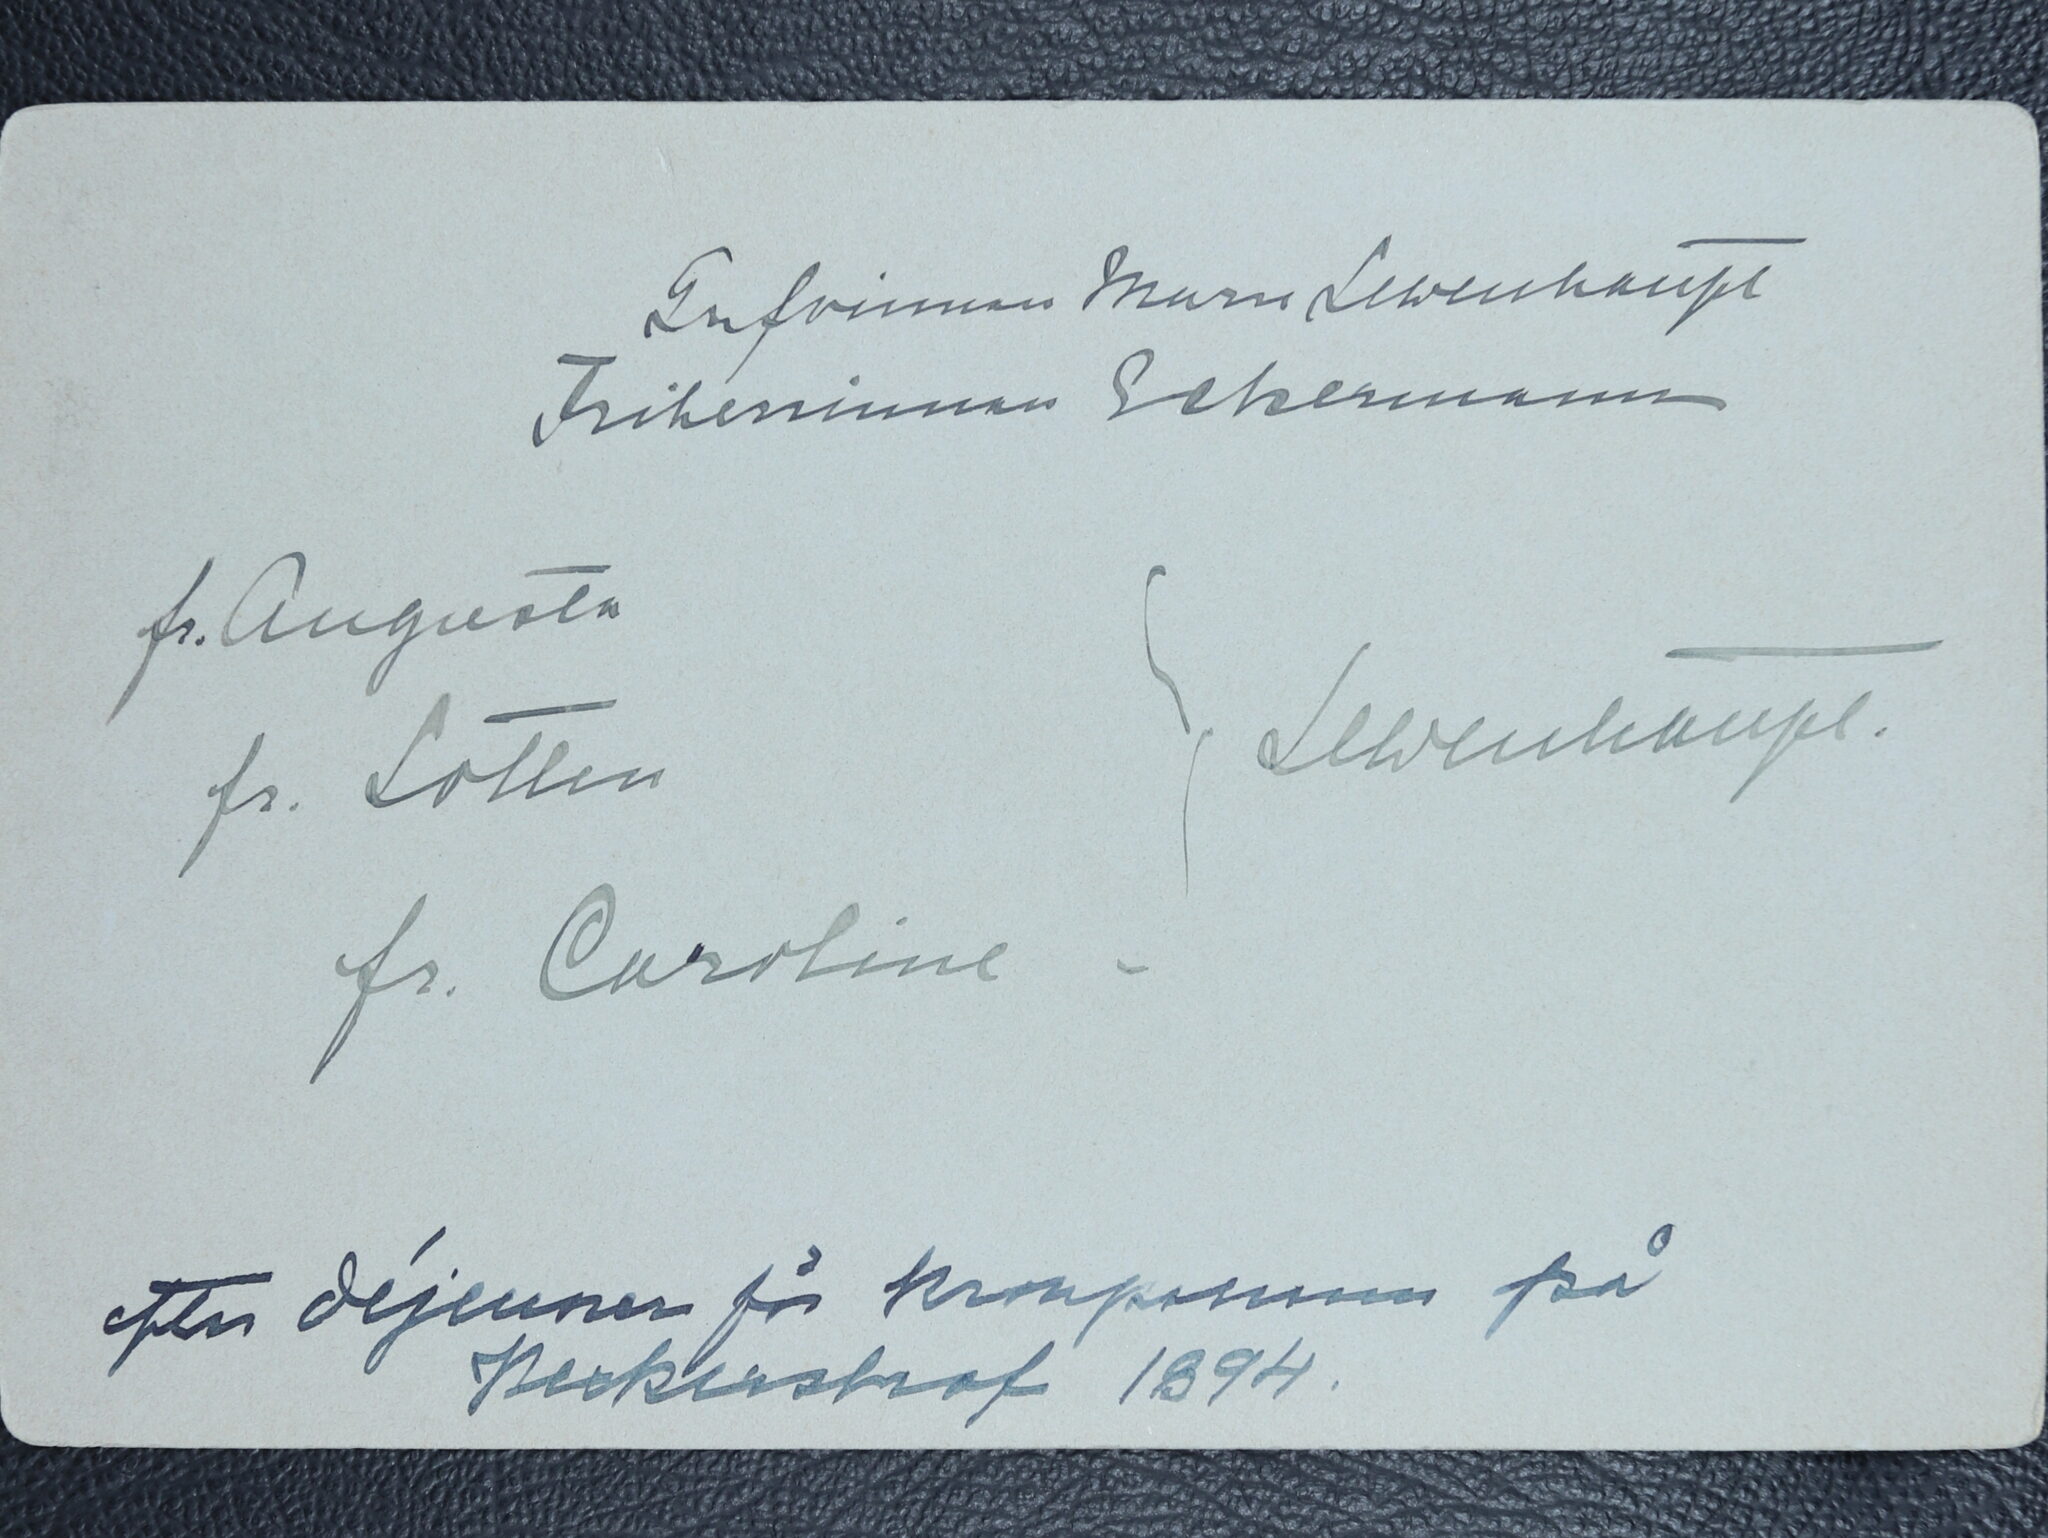 Grefvinnan Marie Lewenhaupt
Friherrinnan Eckermann
fr. Augusta
fr. Lotten
Lewenhaupt.
fr. Caroline -
efter déjeuner för kronprinsen på
1894.